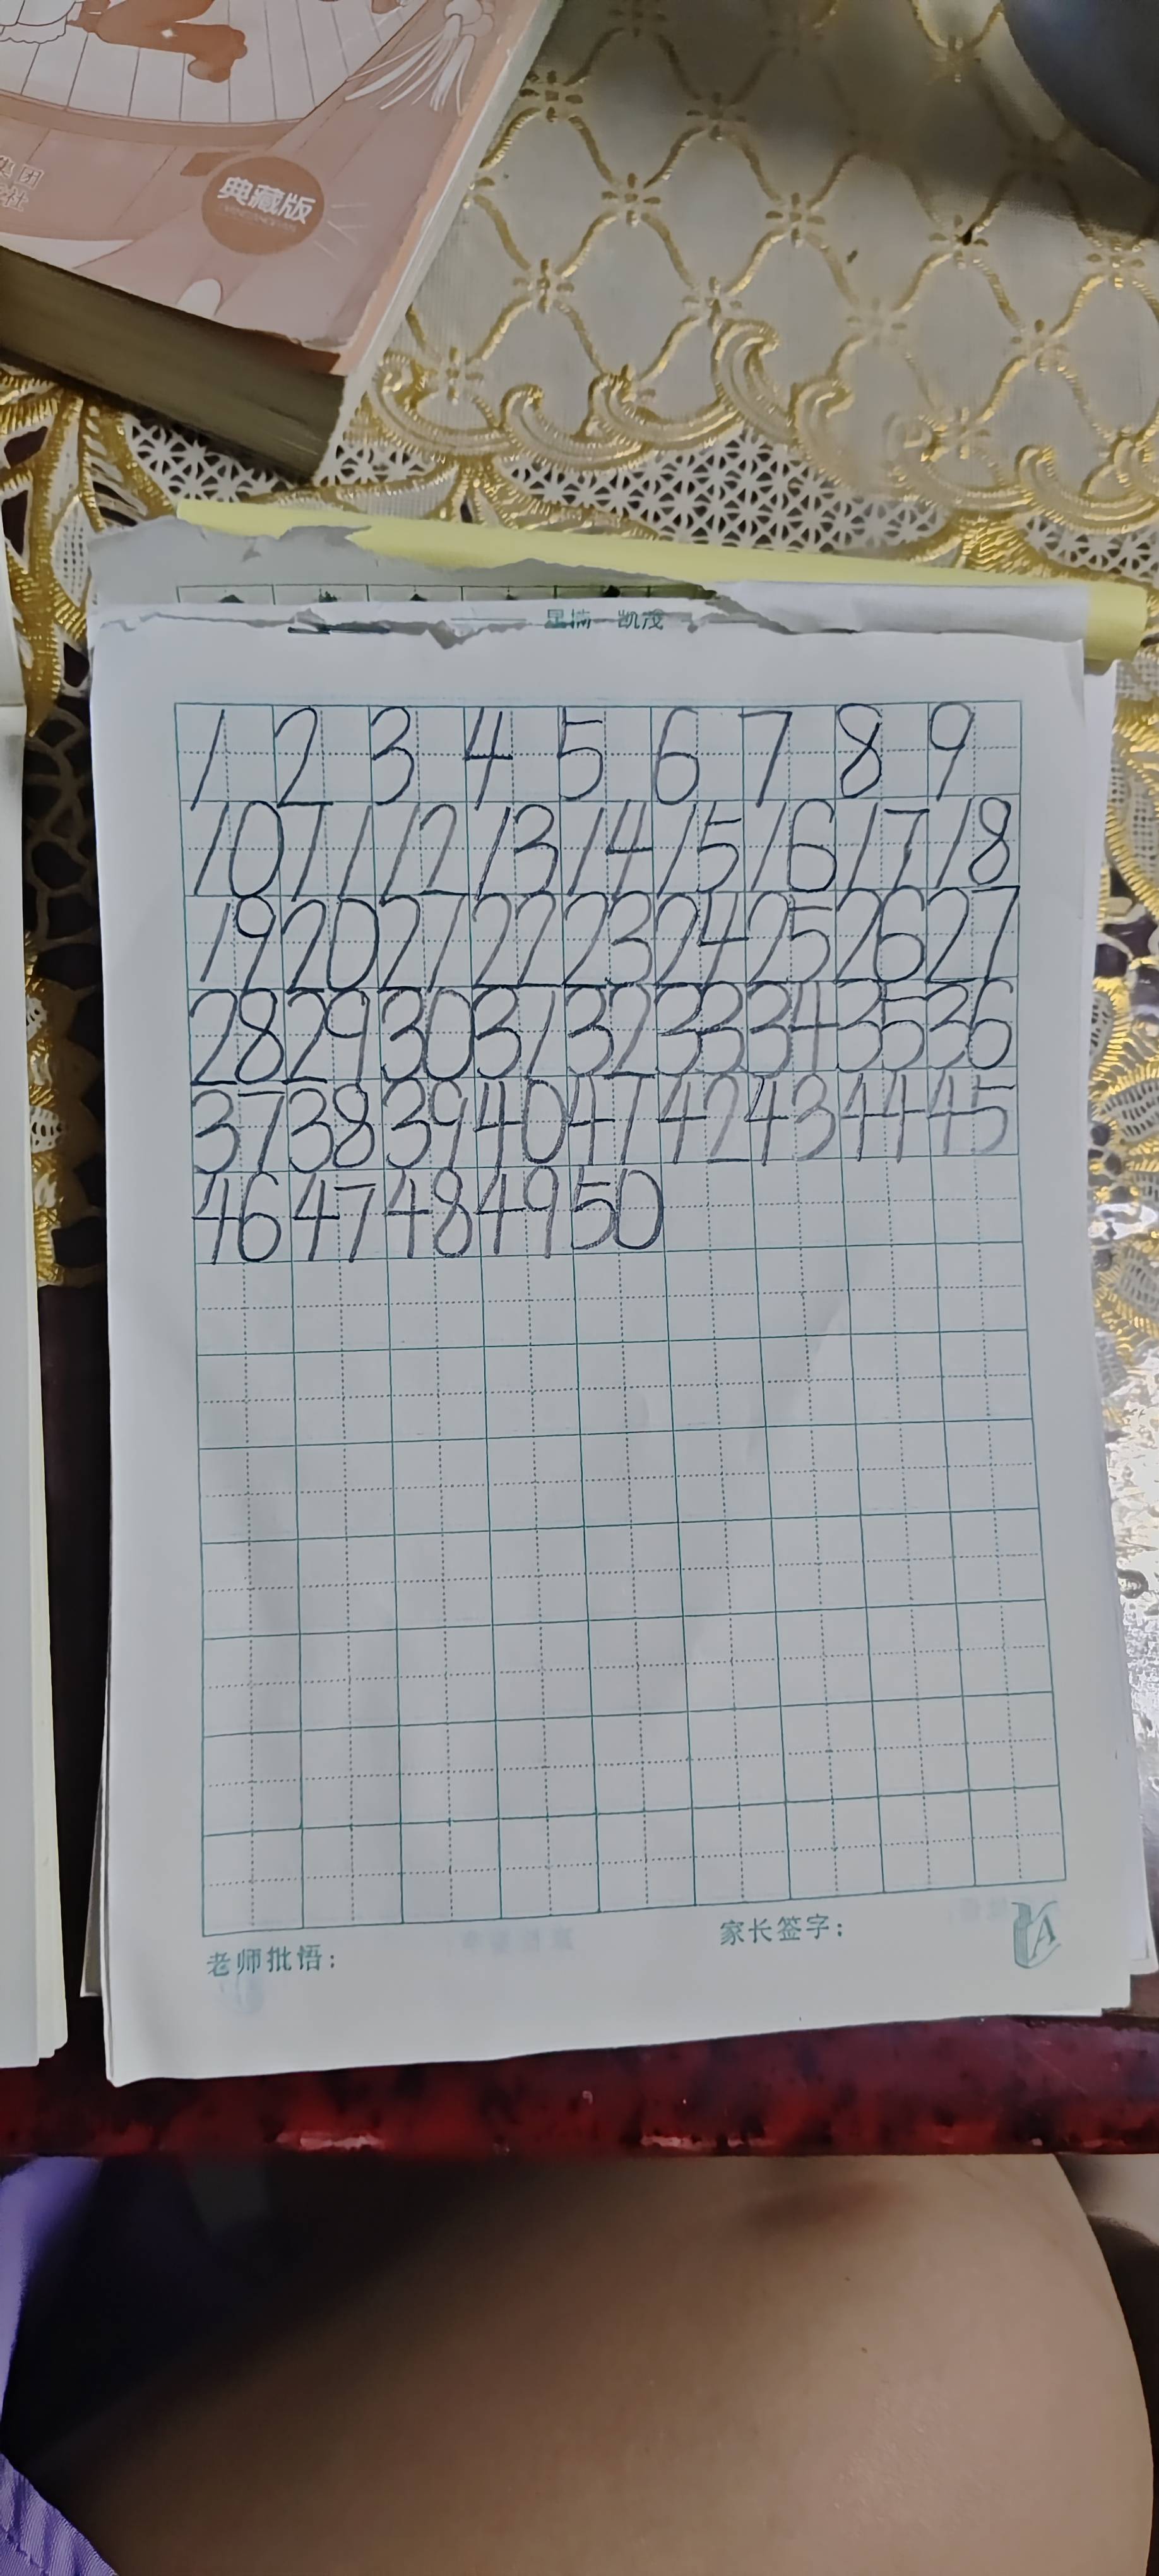 集团
社
典藏版
1 2 3 4 5 6 7 8 9
10 11 12 13 14 15 16 17 18
19 20 21 22 23 24 25 26 27
28 29 30 31 32 33 34 35 36
37 38 39 40 41 42 43 44 45
46 47 48 49 50
老师批语：
家长签字：